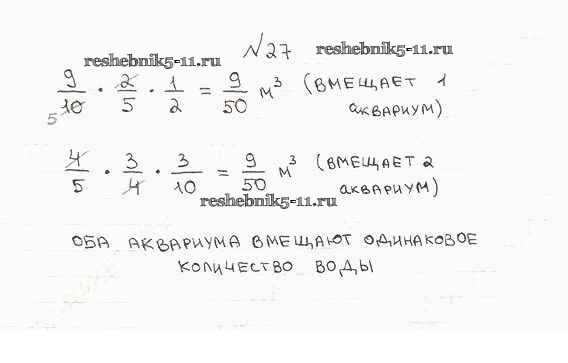 №27
reshebnik5-11.ru reshebnik5-11.ru
9/10 · 2/5 · 1/2 = 9/50 м³ (ВМЕЩАЕТ 1
5
АКВАРИУМ)
4/5 · 3/4 · 3/10 = 9/50 м³ (ВМЕЩАЕТ 2
АКВАРИУМ)
reshebnik5-11.ru
ОБА АКВАРИУМА ВМЕЩАЮТ ОДИНАКОВОЕ
КОЛИЧЕСТВО ВОДЫ